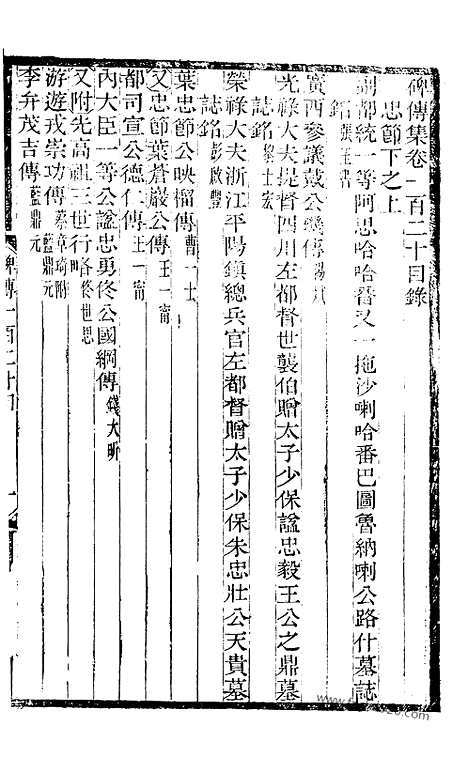 碑傳集卷一百二十目錄
忠節下之上
副都統一等阿思哈哈番又一拖沙喇哈番巴圖魯納喇公路什墓誌
銘 張玉書
廣西參議戴公璣傳
光祿大夫提督四川左都督世襲伯贈太子少保諡忠毅王公之鼎墓
誌銘 黎士宏
榮祿大夫浙江平陽鎮總兵官左都督贈太子少保朱忠壯公天貴墓
誌銘 彭啟豐
葉忠節公映榴傳 曹一士
又忠節葉蒼巖公傳 王一甯
都司宣公德仁傳 王一甯
內大臣一等公諡忠勇佟公國綱傳 錢大昕
又附先高祖三世行略 佟世思
游遊戎崇功傳 蔡章琦附 藍鼎元
李茂吉傳 藍鼎元
碑傳一百二十目